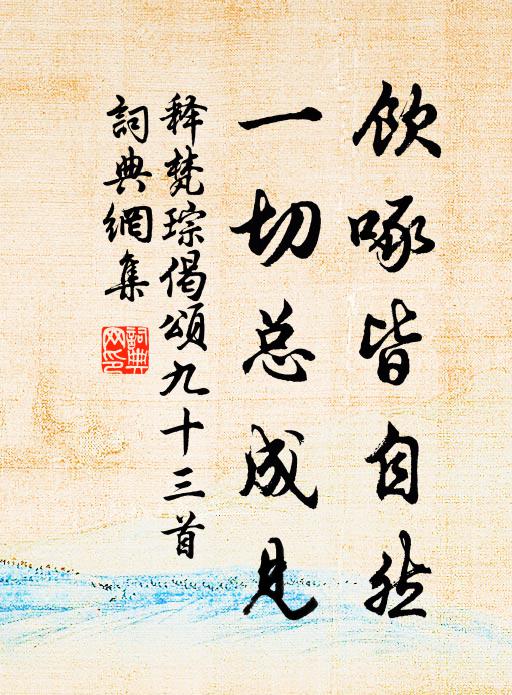 饮啄皆自然
一切总成见
释梵琮偈颂九十三首
词典網集
詞典網印